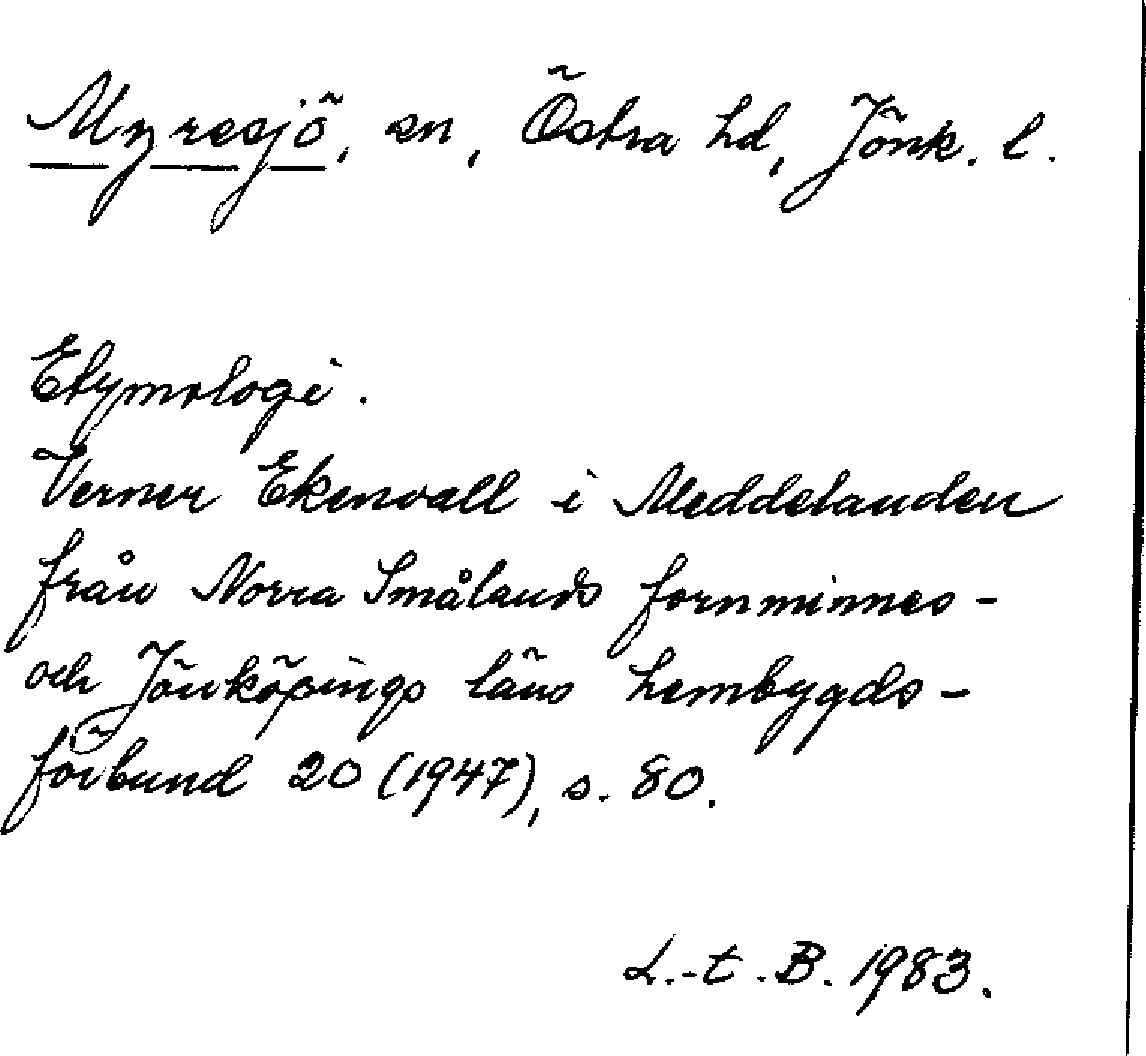 Myresjö, sn, Östra hd, Jönk. l.
Etymologi.
Verner Ekenvall i Meddelanden
från Norra Smålands fornminnes-
och Jönköpings läns hembygds-
förbund 20 (1947), s. 80.
L.-t. B. 1983.